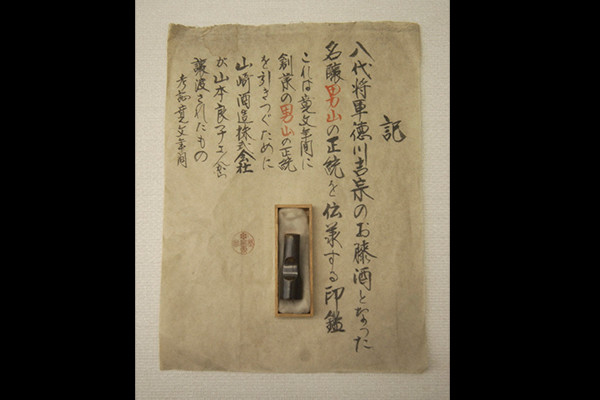 記
八代将軍徳川吉宗のお膝酒となった
名醸男山の正統を伝承する印鑑
これは寛文年間に
創業の男山の正統
を引きつぐために
山崎酒造株式会社
が山本良子さんから
譲渡されたもの
寛文年間